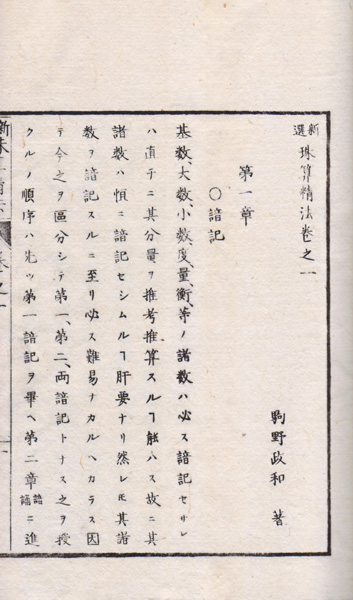 新選 珠算精法卷之一
駒野政和 著
第一章
〇諳記
基数、大数、小数、度、量、衡、等ノ諸数ハ必ス諳記セサレ
ハ直チニ其分量ヲ推考推算スルヿ能ハス故ニ其
諸数ハ恒ニ諳記セシムルヿ肝要ナリ然レ𪜈其諸
数ヲ諳記スルニ至リ必ス難易ナカルヘカラス因
テ今之ヲ區分シテ第一、第二、両諳記トナス之ヲ授
クルノ順序ハ先ツ第一諳記ヲ畢ヘ第二章諳誦ニ進